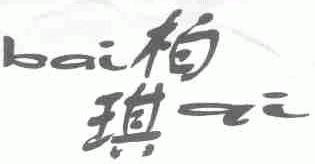 bai柏
琪qi